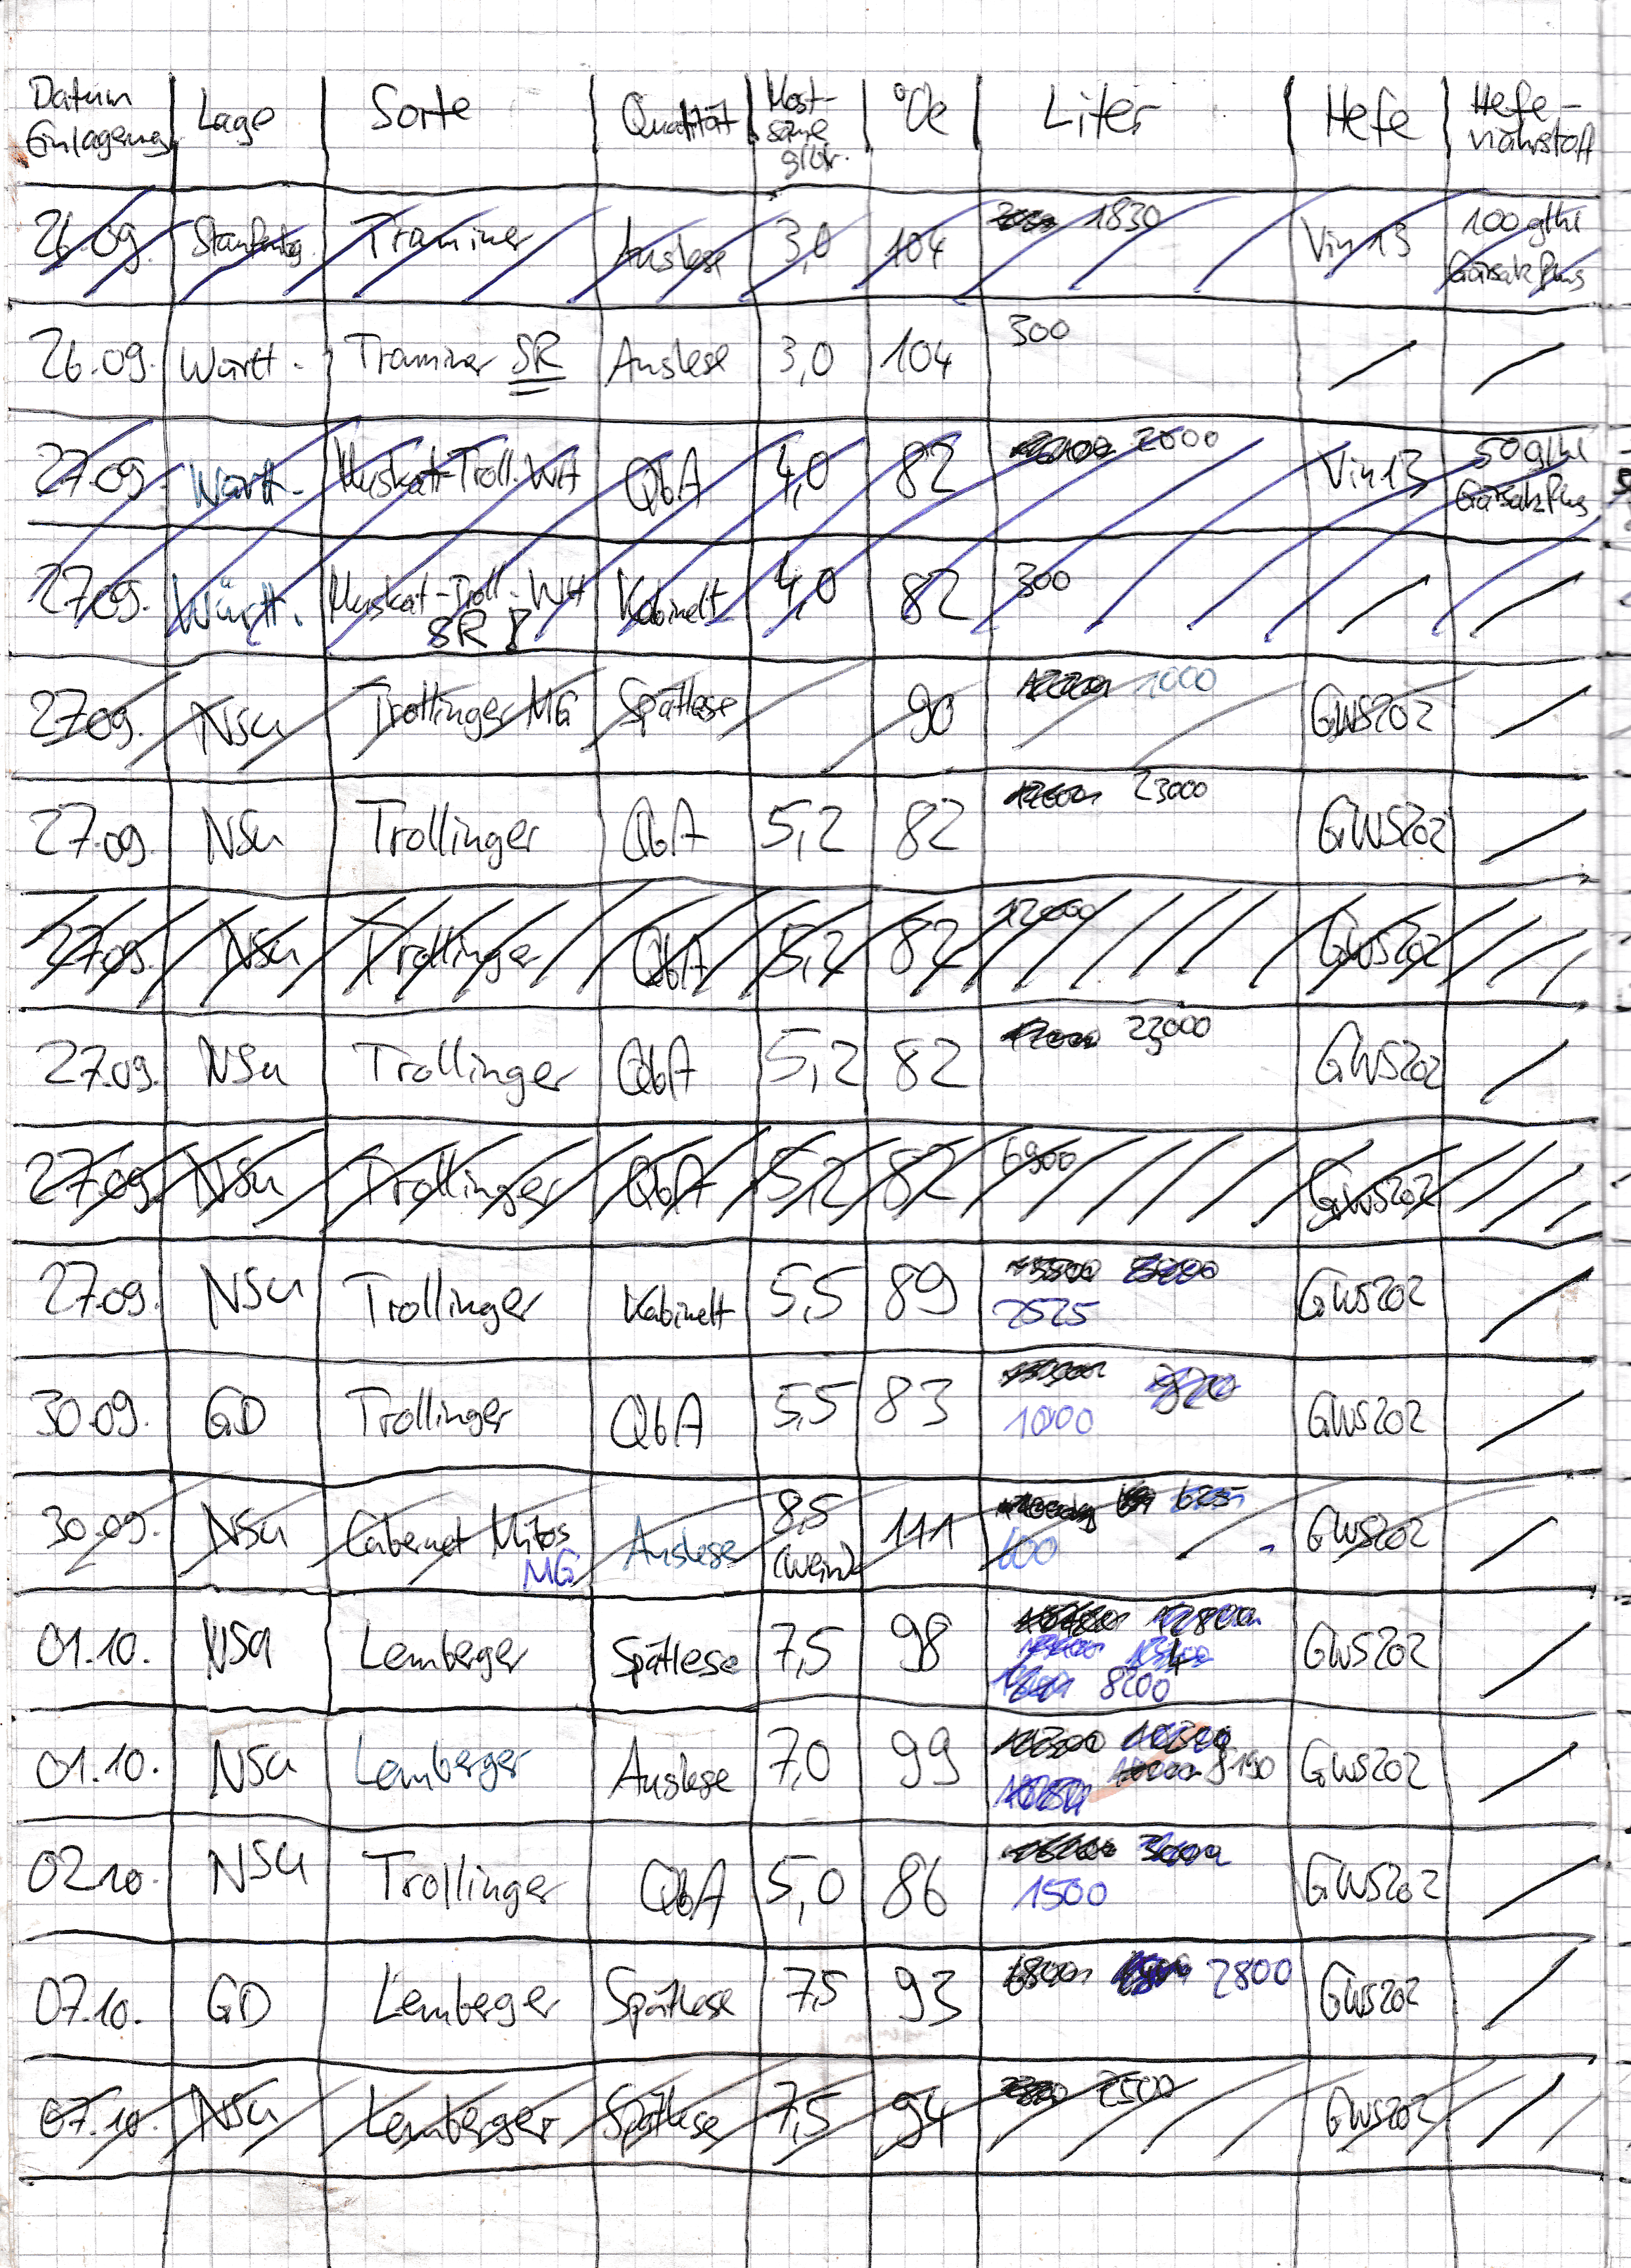 Datum Einlagerung | Lage | Sorte | Qualität | Most- säure g/ltr. | °Oe | Liter | Hefe | Hefe- nährstoff
26.09. | Staufenbg. | Traminer | Auslese | 3,0 | 104 | 1830 | Vin 13 | 100 g/hl Gärsalz Plus
26.09. | Württ. | Traminer SR | Auslese | 3,0 | 104 | 300 | / | /
27.09. | Württ. | Muskat-Troll. WH | QbA | 4,0 | 82 | 2000 | Vin 13 | 50 g/hl Gärsalz Plus
27.09. | Württ. | Muskat-Troll. WH SR | Kabinett | 4,0 | 82 | 300 | / | /
27.09. | NSu | Trollinger MG | Spätlese | | 90 | 1000 | GWS202 | /
27.09. | NSu | Trollinger | QbA | 5,2 | 82 | 23000 | GWS202 | /
27.09. | NSu | Trollinger | QbA | 5,2 | 82 | 12000 | GWS202
27.09. | NSu | Trollinger | QbA | 5,2 | 82 | 23000 | GWS202 | /
27.09. | NSu | Trollinger | QbA | 5,2 | 82 | 6900 | GWS202
27.09. | NSu | Trollinger | Kabinett | 5,5 | 89 | 2525 | GWS202 | /
30.09. | GD | Trollinger | QbA | 5,5 | 83 | 1000 | GWS202 | /
30.09. | NSu | Cabernet Mitos MG | Auslese | 8,5 (Wein) | 111 | 600 | GWS202 | /
01.10. | NSu | Lemberger | Spätlese | 7,5 | 98 | 8200 | GWS202 | /
01.10. | NSu | Lemberger | Auslese | 7,0 | 99 | 8190 | GWS202 | /
02.10. | NSu | Trollinger | QbA | 5,0 | 86 | 1500 | GWS202 | /
07.10. | GD | Lemberger | Spätlese | 7,5 | 93 | 2800 | GWS202 | /
07.10. | NSu | Lemberger | Spätlese | 7,5 | 94 | 2500 | GWS202 | /